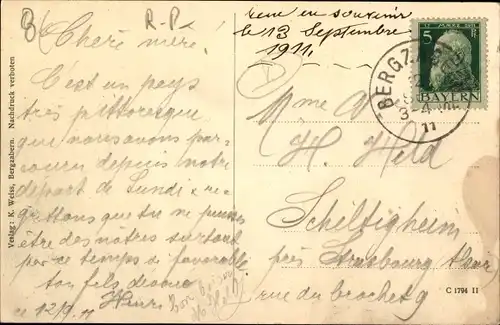 B R-P.
Chère mère!
C'est un pays
très pittoresque
que nous avons par-
couru depuis notre
départ de Lundi & re-
grettons que tu ne puisses
être des nôtres surtout
par ce temps si favorable
ton fils dévoué
ce 12/9.11 Henri
Verlag: K. Weiss, Bergzabern. Nachdruck verboten
en souvenir
le 13 Septembre
1911.
5 5
BAYERN
BERGZABERN
3-4 NM
11
Mme
H. Held
Schiltigheim
près Strasbourg Alsace
rue du brochet 9
C 1794 II